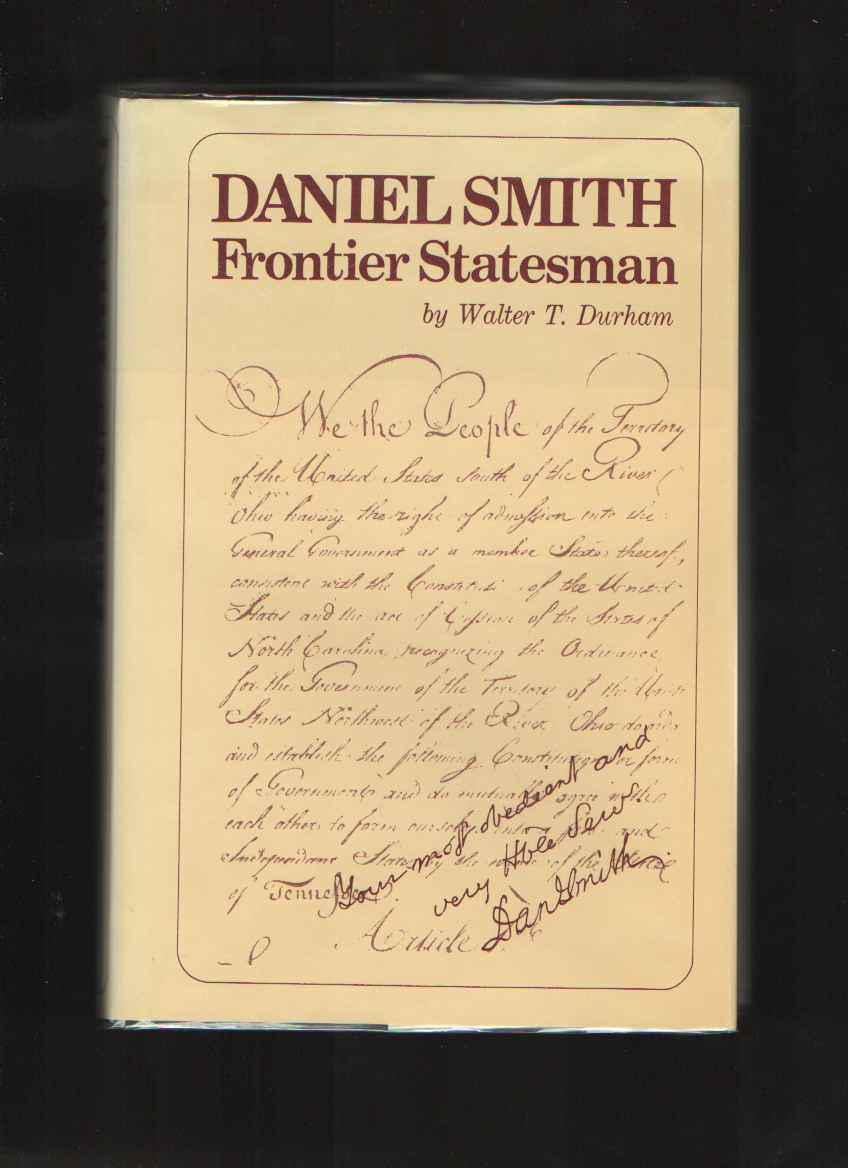 DANIEL SMITH
Frontier Statesman
by Walter T. Durham
We the People of the Territory
of the United States south of the River
Ohio having the right of admission into the
General Government as a member State thereof,
consistent with the Constituti of the United
States and the act of Cession of the States of
North Carolina, recognizing the Ordinance
for the Government of the Territory of the
States Northwest of the River Ohio do
and establish the following Constitution or form
of Government and do mutually agree with
each other to form ourselves into a and
Independant State by the name of the State
of Tennessee
Your most obedient and
very Hble Serv
Dan Smith
Article